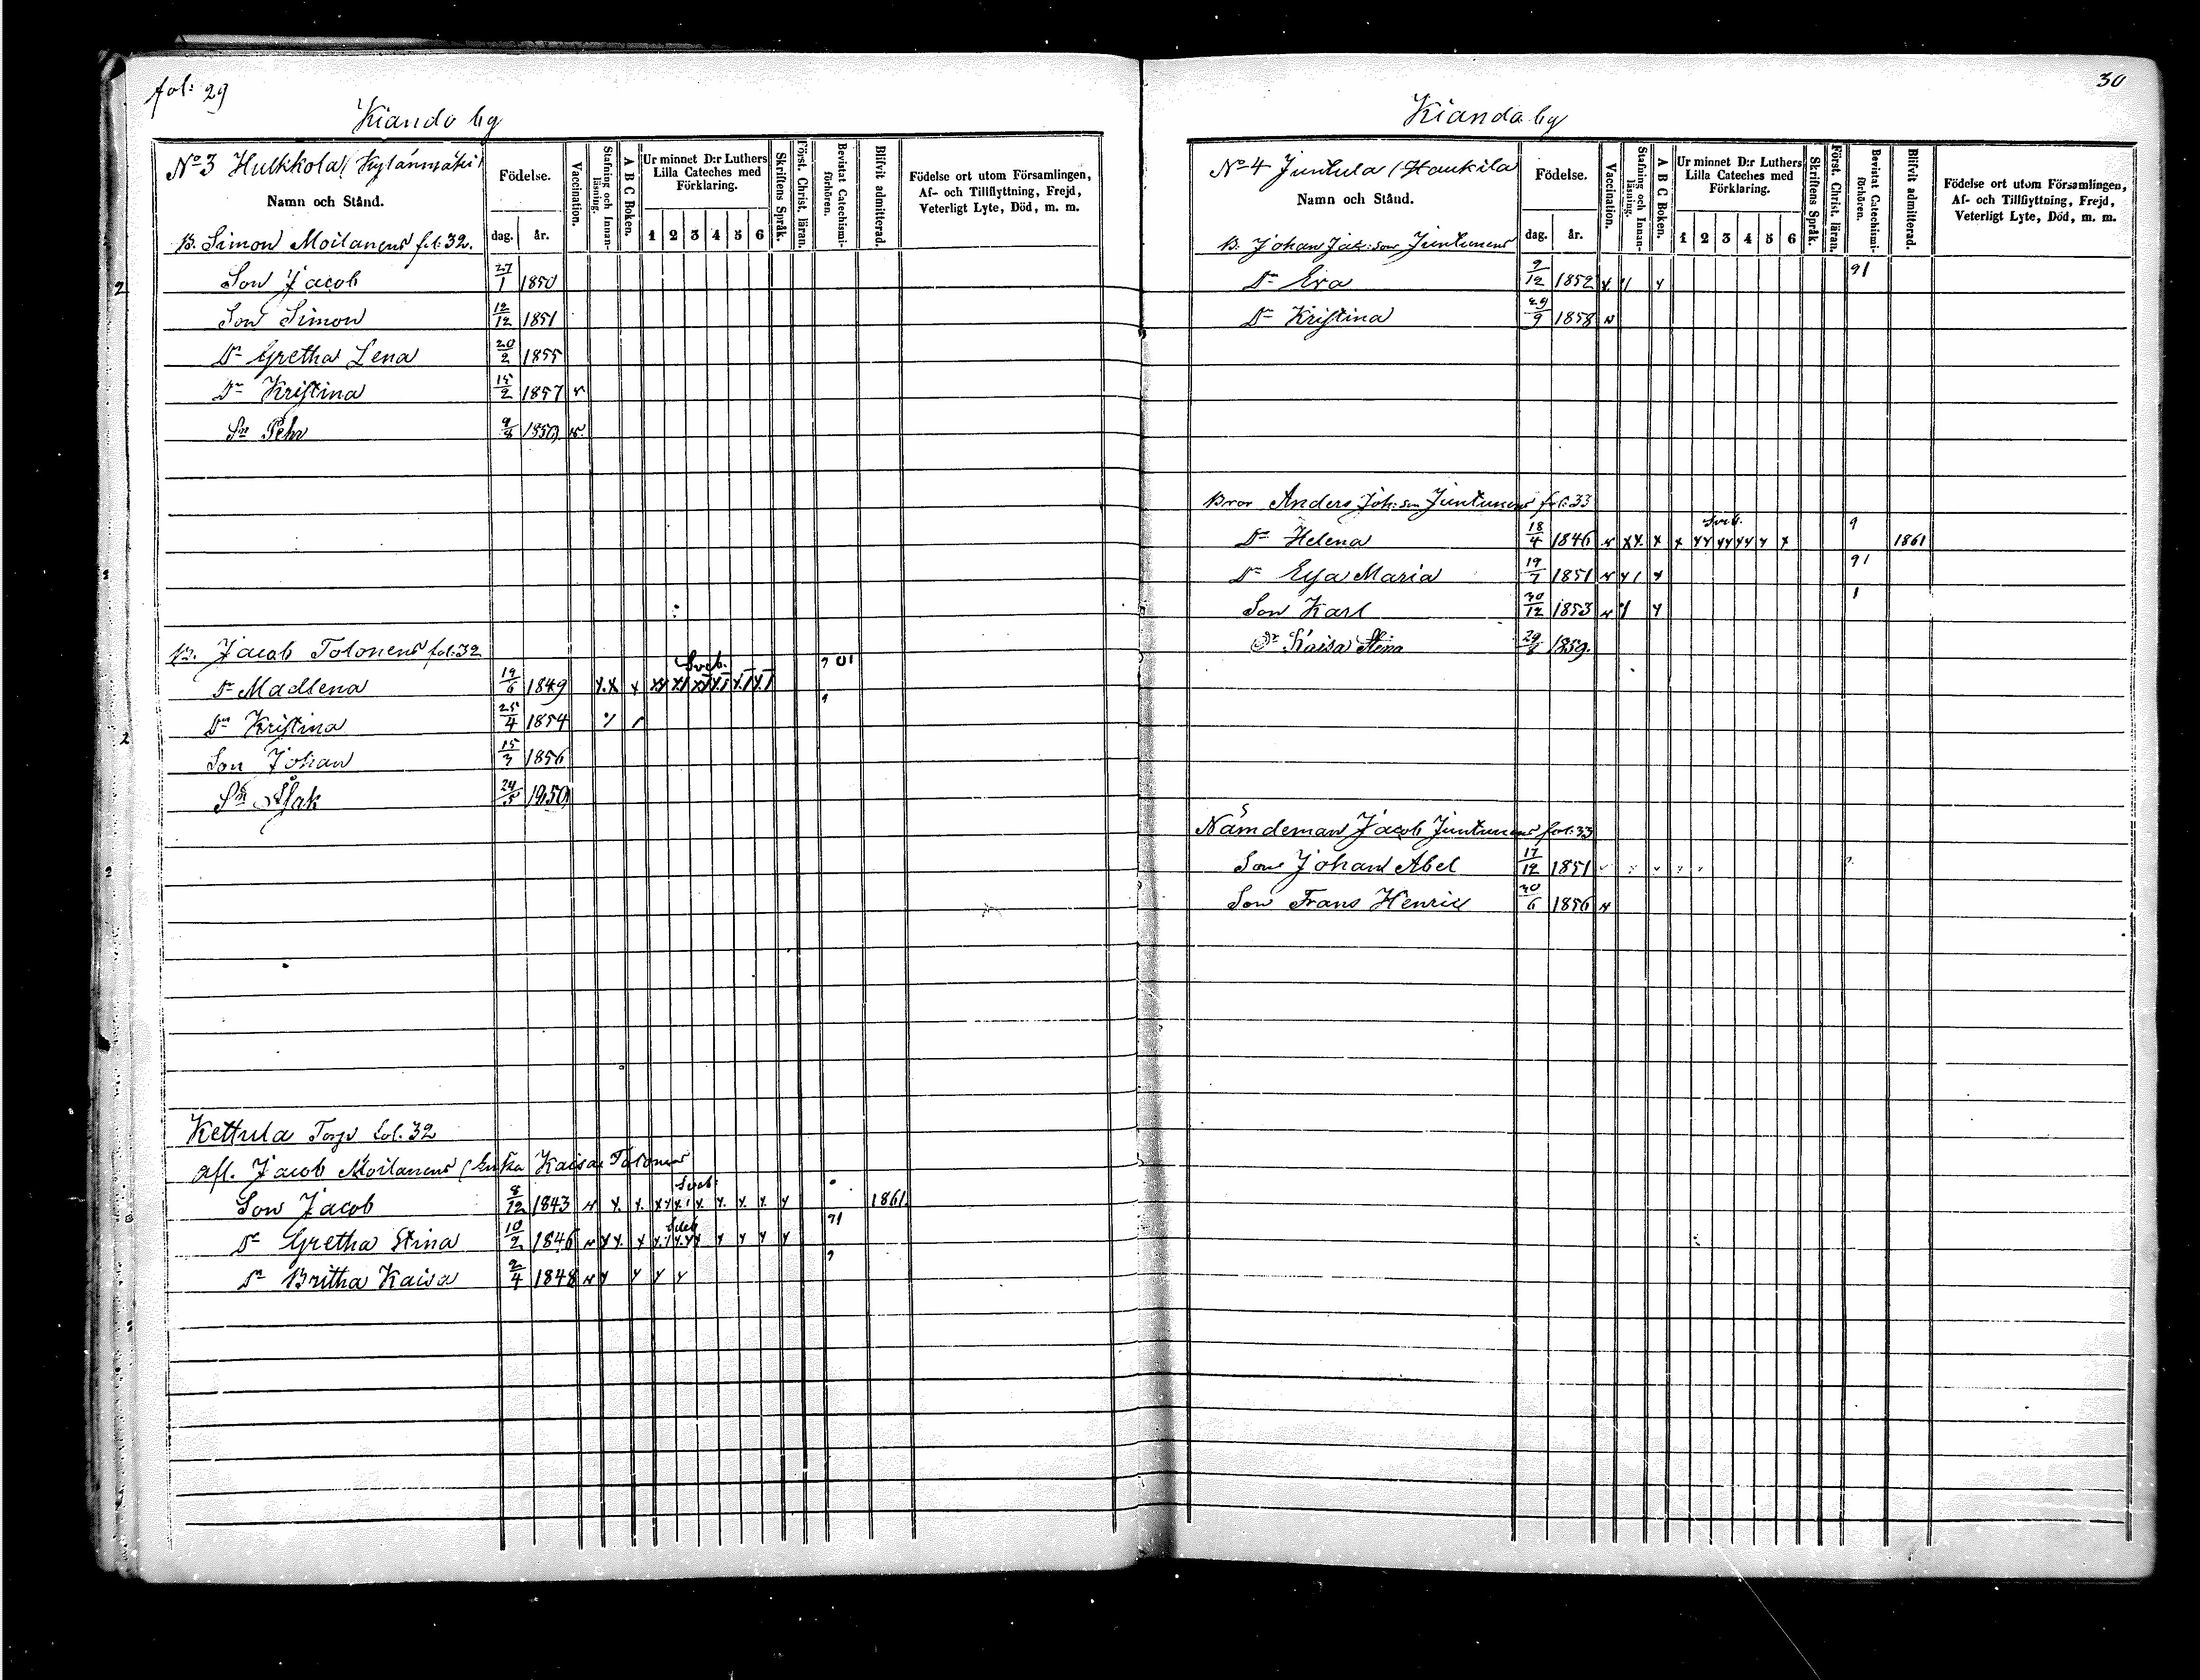 fol: 29
Kiando by
No 3 Hulkkola / Kylänmäki /
Namn och Stånd.
Födelse.
dag. år.
Vaccination.
Stafning och Innanläsning.
A B C Boken.
Ur minnet D:r Luthers Lilla Cateches med Förklaring.
1 2 3 4 5 6
Skriftens Språk.
Först. Christ. läran.
Bevistat Catechismiförhören.
Blifvit admitterad.
Födelse ort utom Församlingen, Af- och Tillflyttning, Frejd, Veterligt Lyte, Död, m. m.
B. Simon Moilanens fol: 32.
Son Jacob 27/1 1850
Son Simon 12/12 1851
Dr Gretha Lena 20/2 1855
Dr Kristina 15/2 1857 v
Sn Pehr 1859 v.
B. Jacob Tolonens fol: 32
Dr Madlena 19/6 1849
Dr Kristina 25/4 1854
Son Johan 15/3 1856
Sn Isak 24/5
Kettula Torp fol. 32
Afl. Jacob Moilanens / Enka Kaisa Tolonens
Son Jacob 8/12 1843 1861.
Dr Gretha Stina 10/2 1846
Dr Britha Kaisa 2/4 1848
30
Kianda by
No 4 Juntula / Haukila
Namn och Stånd.
Födelse.
dag. år.
Vaccination.
Stafning och Innanläsning.
A B C Boken.
Ur minnet D:r Luthers Lilla Cateches med Förklaring.
1 2 3 4 5 6
Skriftens Språk.
Först. Christ. läran.
Bevistat Catechismiförhören.
Blifvit admitterad.
Födelse ort utom Församlingen, Af- och Tillflyttning, Frejd, Veterligt Lyte, Död, m. m.
B. Johan Jak: son Juntunens
Dr Eva 9/12 1852 91
Dr Kristina 29/9 1858
Bror Anders Joh: son Juntunens fol: 33
Dr Helena 18/4 1846 9 1861
Dr Eva Maria 19/7 1851 91
Son Karl 30/12 1853 1
Dr Kaisa Stina 1859.
Nämdeman Jacob Juntunens fol: 33
Son Johan Abel 17/12 1851
Son Frans Henric 30/6 1856